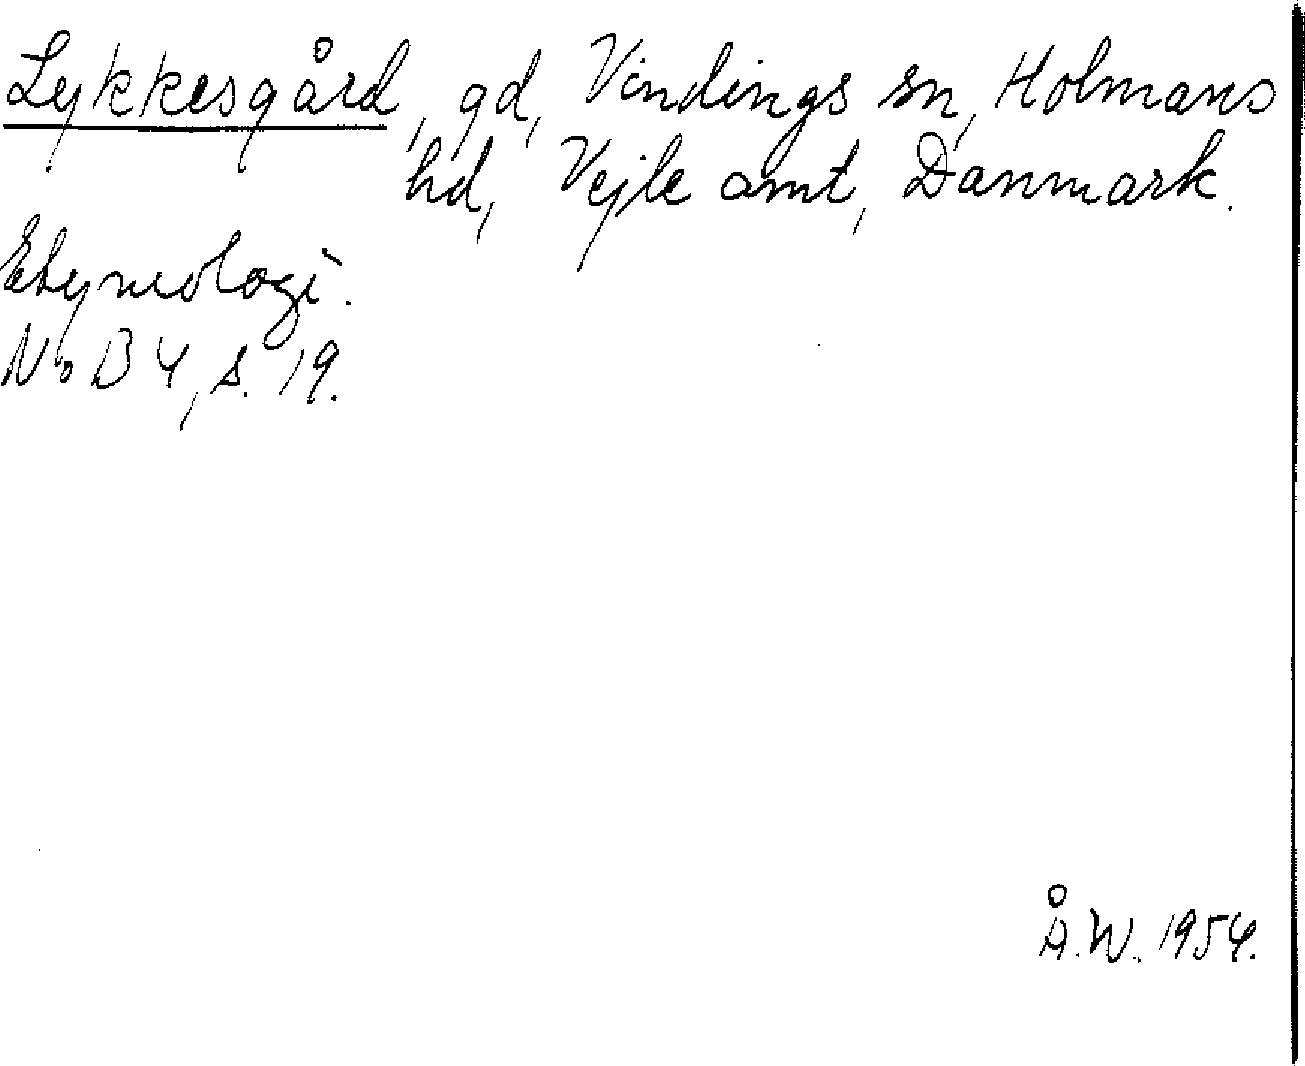 Lykkesgård, gd, Vindings sn, Holmans
hd, Vejle amt, Danmark.
Etymologi.
NoB 4, s. 19.
Å.W. 1954.